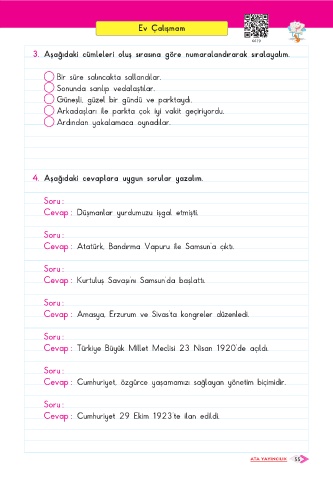 Ev Çalışmam
3. Aşağıdaki cümleleri oluş sırasına göre numaralandırarak sıralayalım.
Bir süre salıncakta sallandılar.
Sonunda sarılıp vedalaştılar.
Güneşli, güzel bir gündü ve parktaydı.
Arkadaşları ile parkta çok iyi vakit geçiriyordu.
Ardından yakalamaca oynadılar.
4. Aşağıdaki cevaplara uygun sorular yazalım.
Soru :
Cevap : Düşmanlar yurdumuzu işgal etmişti.
Soru :
Cevap : Atatürk, Bandırma Vapuru ile Samsun'a çıktı.
Soru :
Cevap : Kurtuluş Savaşını Samsun'da başlattı.
Soru :
Cevap : Amasya, Erzurum ve Sivas'ta kongreler düzenledi.
Soru :
Cevap : Türkiye Büyük Millet Meclisi 23 Nisan 1920'de açıldı.
Soru :
Cevap : Cumhuriyet, özgürce yaşamamızı sağlayan yönetim biçimidir.
Soru :
Cevap : Cumhuriyet 29 Ekim 1923'te ilan edildi.
ATA YAYINCILIK 55